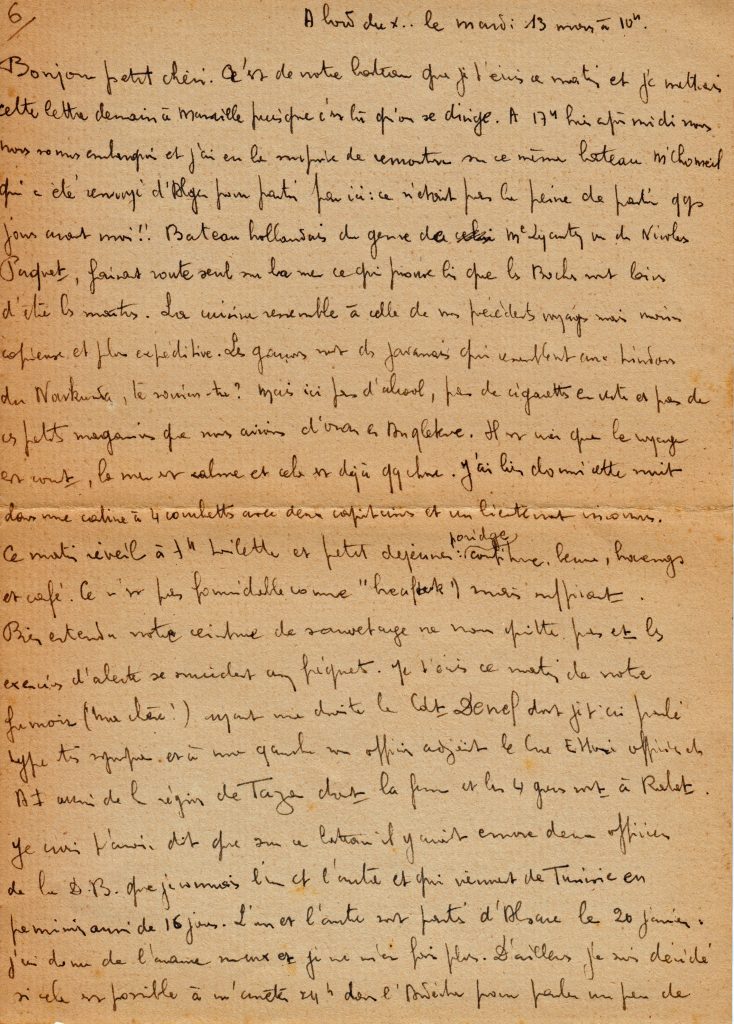 6
A bord du x.. le mardi 13 mars à 10h.
Bonjour petit chéri. C'est de notre bateau que je t'écris ce matin et je mettrai
cette lettre demain à Marseille puisque c'est là qu'on se dirige. A 17h hier après midi nous
nous sommes embarqué et j'ai eu la surprise de remonter sur ce même bateau
qui a été renvoyé d'Alger pour partir par ici : ce n'était pas la peine de partir qqs
jours avant moi!! Bateau hollandais du genre de Mal Lyautey ou du Nicolas
Paquet, faisant route seul sur la mer ce qui prouve bien que les Boches sont loin
d'être les maitres. La cuisine ressemble à celle de nos précédents voyages mais moins
copieuse et plus expéditive. Les garçons sont des javanais qui ressemblent aux hindous
du Narkunda, te souviens-tu? Mais ici pas d'alcool, pas de cigarettes en vente et pas de
ces petits magasins que nous avions d'Oran en Angleterre. Il est vrai que le voyage
est court, la mer est calme et cela est déjà qq chose. J'ai bien dormi cette nuit
dans une cabine à 4 couchettes avec deux capitaines et un lieutenant inconnus.
Ce matin réveil à 7h toilette et petit dejeuner : poridge confiture, beurre, harengs
et café. Ce n'est pas formidable comme "breakfeast") mais suffisant.
Bien entendu notre ceinture de sauvetage ne nous quitte pas et les
exercices d'alerte se succèdent assez fréquents. Je t'écris ce matin de notre
fumoir (ma chère!) ayant à ma droite le Cdt Denef dont je t'ai parlé
type très sympa et à ma gauche son officier adjoint le Cne officier des
AI aussi de la région de Taza dont la femme et les 4 gosses sont à Rabat.
Je crois t'avoir dit que sur ce bateau il y avait encore deux officiers
de la D.B. que je connais l'un et l'autre et qui viennent de Tunisie en
permission aussi de 16 jours. L'un et l'autre sont partis d'Alsace le 20 janvier :
j'ai donc de l'avance sur eux et je ne m'en fais plus. D'ailleurs je suis décidé
si cela est possible à m'arrêter 24h dans l'Ardèche pour parler un peu de